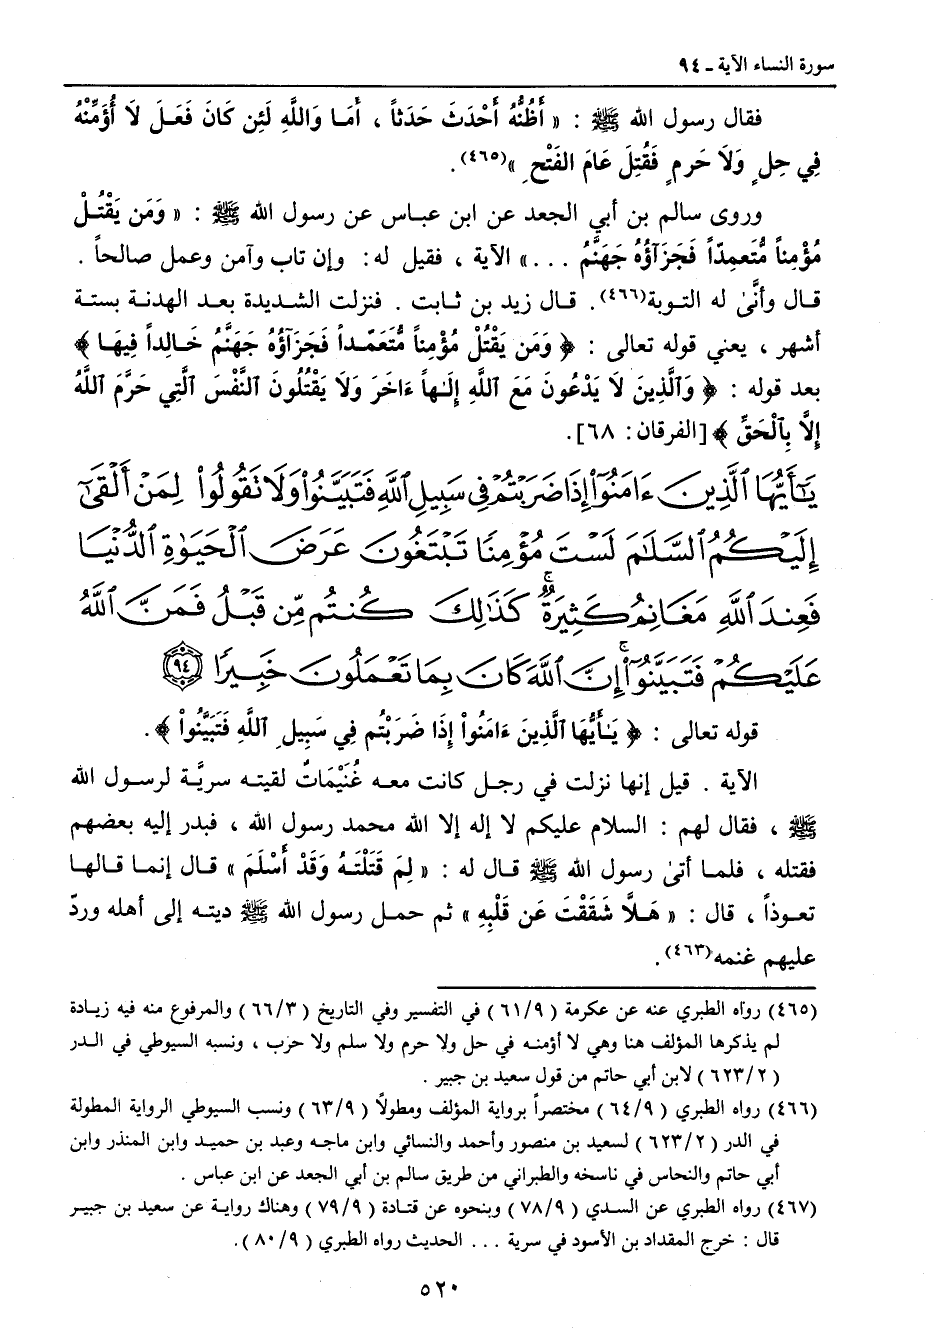 سورة النساء الآية ـ ٩٤
فقال رسول الله ﷺ : « أَظُنُّهُ أَحْدَثَ حَدَثاً ، أَمَا وَاللَّهِ لَئِن كَانَ فَعَلَ لَا أُؤَمِّنْهُ
فِي حِلٍ وَلَا حَرمٍ فَقُتِلَ عَامَ الفَتْحِ »(٤٦٥) .
وروى سالم بن أبي الجعد عن ابن عباس عن رسول الله ﷺ : « وَمَن يَقْتُلْ
مُؤْمِناً مُّتَعمِدّاً فَجَزَآؤُهُ جَهَنَّمُ . . .» الآية ، فقيل له: وإن تاب وآمن وعمل صالحاً .
قال وأنَّىٰ له التوبة(٤٦٦). قال زيد بن ثابت . فنزلت الشديدة بعد الهدنة بستة
أشهر ، يعني قوله تعالى : ﴿ وَمَن يَقْتُلْ مُؤْمِناً مُّتَعَمّداً فَجَزَآؤُهُ جَهَنَّمُ خَالِداً فِيهَا ﴾
بعد قوله : ﴿ وَٱلَّذِينَ لَا يَدْعُونَ مَعَ اللَّهِ إِلَـٰهاً ءَاخَرَ وَلَا يَقْتُلُونَ ٱلنَّفْسَ ٱلَّتِي حَرَّمَ ٱللَّهُ
إِلَّا بِٱلْحَقِّ ﴾ [الفرقان: ٦٨].
يَٰٓأَيُّهَا ٱلَّذِينَ ءَامَنُوٓا۟ إِذَا ضَرَبْتُمْ فِى سَبِيلِ ٱللَّهِ فَتَبَيَّنُوا۟ وَلَا تَقُولُوا۟ لِمَنْ أَلْقَىٰٓ
إِلَيْكُمُ ٱلسَّلَٰمَ لَسْتَ مُؤْمِنًا تَبْتَغُونَ عَرَضَ ٱلْحَيَوٰةِ ٱلدُّنْيَا
فَعِندَ ٱللَّهِ مَغَانِمُ كَثِيرَةٌ ۚ كَذَٰلِكَ كُنتُم مِّن قَبْلُ فَمَنَّ ٱللَّهُ
عَلَيْكُمْ فَتَبَيَّنُوٓا۟ ۚ إِنَّ ٱللَّهَ كَانَ بِمَا تَعْمَلُونَ خَبِيرًا ٩٤
قوله تعالى : ﴿ يَـٰأَيُّهَا ٱلَّذِينَ ءَامَنُواْ إِذَا ضَرَبْتُم فِي سَبِيلِ ٱللَّهِ فَتَبَيَّنُواْ ﴾ .
الآية . قيل إنها نزلت في رجل كانت معه غُنَيْمَاتٌ لقيته سريَّة لرسول الله
ﷺ ، فقال لهم : السلام عليكم لا إله إلا الله محمد رسول الله ، فبدر إليه بعضهم
فقتله ، فلما أتىٰ رسول الله ﷺ قال له : « لِمَ قَتَلْتَهُ وَقَدْ أَسْلَمَ » قال إنما قالها
تعوذاً ، قال : « هَلَّا شَقَقْتَ عَن قَلْبِهِ » ثم حمل رسول الله ﷺ ديته إلى أهله وردّ
عليهم غنمه(٤٦٣) .
(٤٦٥) رواه الطبري عنه عن عكرمة ( ٦١/٩ ) في التفسير وفي التاريخ ( ٦٦/٣ ) والمرفوع منه فيه زيادة
لم يذكرها المؤلف هنا وهي لا أؤمنه في حل ولا حرم ولا سلم ولا حرب ، ونسبه السيوطي في الدر
( ٦٢٣/٢ ) لابن أبي حاتم من قول سعيد بن جبير .
(٤٦٦) رواه الطبري ( ٦٤/٩ ) مختصراً برواية المؤلف ومطولًا ( ٦٣/٩ ) ونسب السيوطي الرواية المطولة
في الدر ( ٦٢٣/٢ ) لسعيد بن منصور وأحمد والنسائي وابن ماجه وعبد بن حميد وابن المنذر وابن
أبي حاتم والنحاس في ناسخه والطبراني من طريق سالم بن أبي الجعد عن ابن عباس .
(٤٦٧) رواه الطبري عن السدي ( ٧٨/٩ ) وبنحوه عن قتادة ( ٧٩/٩ ) وهناك رواية عن سعيد بن جبير
قال : خرج المقداد بن الأسود في سرية . . . الحديث رواه الطبري ( ٨٠/٩ ).
٥٢٠